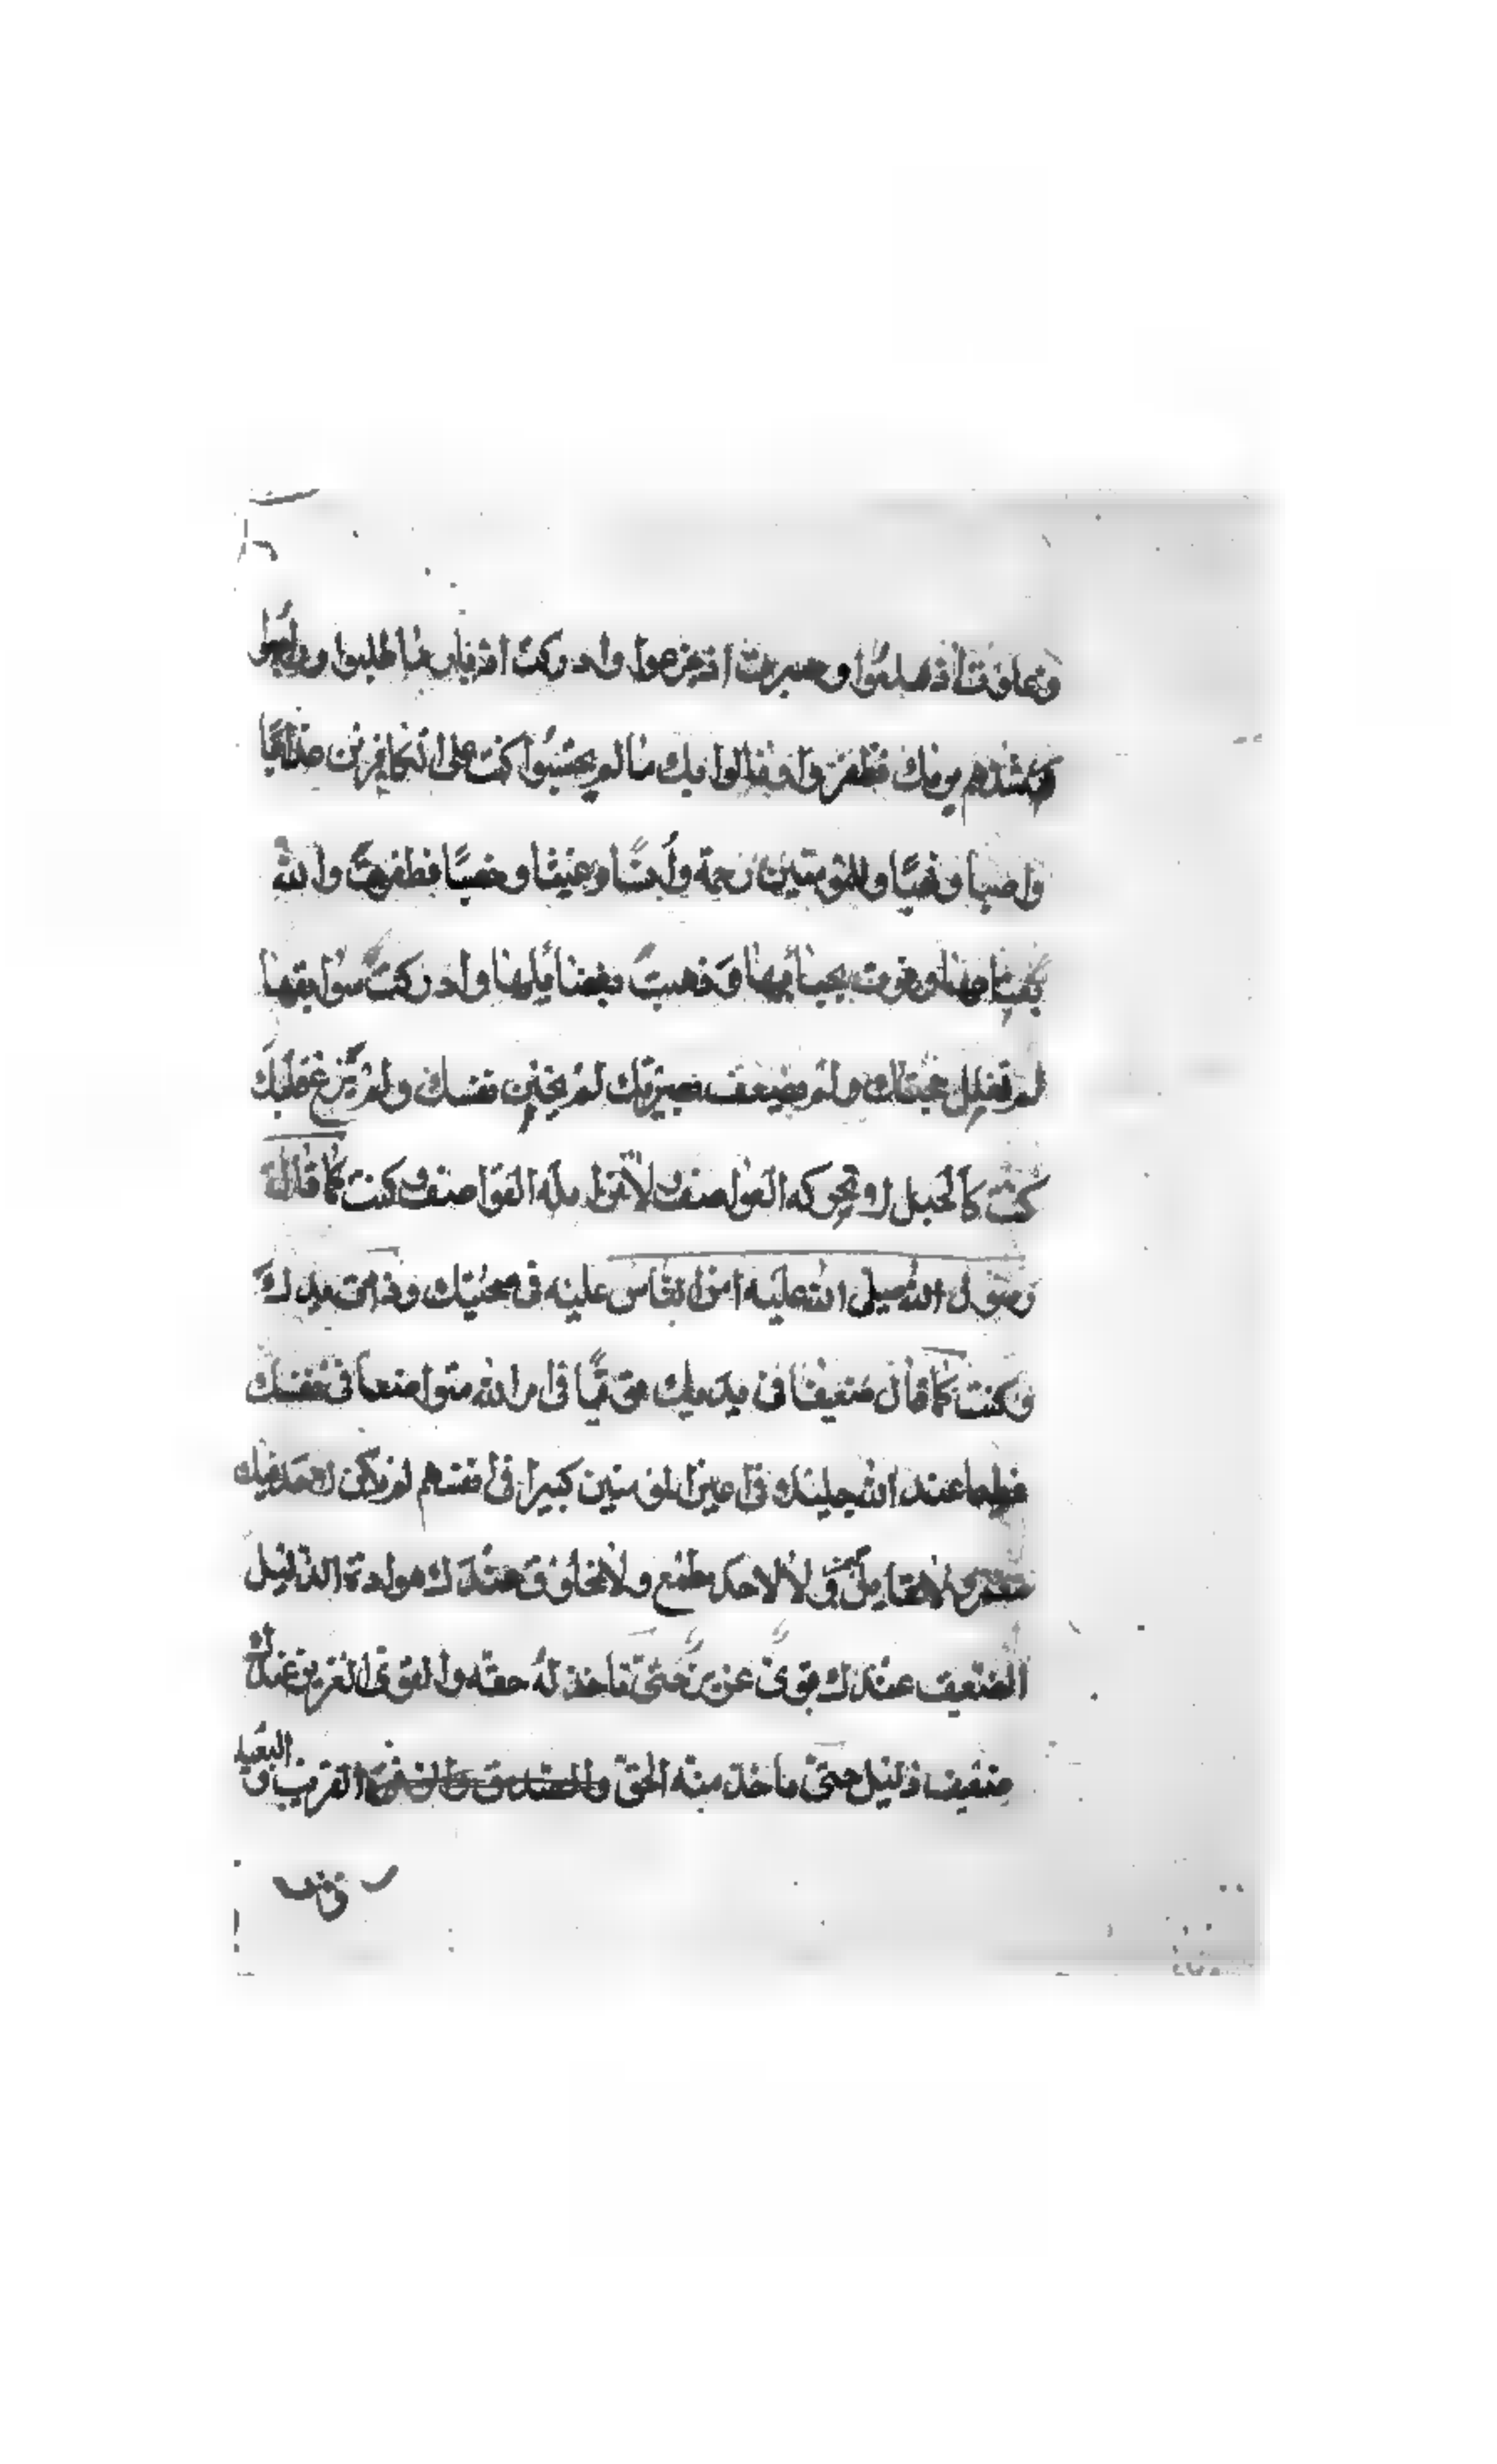 وعلوت اذ هلعوا وصبرت اذ جزعوا وادركت اوتار ما طلبوا وراجعوا
رشدهم برايك فظفروا ونالوا بك ما لم يحتسبوا كنت على الكافرين عذابا
واصبا ونهبا وللمؤمنين رحمة وانسا وغيثا وخصبا فطرت والله
بغنائها وفزت بحبائها وذهبت بفضائلها وادركت سوابقها
لم تفلل حجتك ولم تضعف بصيرتك لم تجبن نفسك ولم يزغ قلبك
كنت كالجبل لا تحركه العواصف لا تزيله القواصف كنت كما قال
رسول الله صلى الله عليه امن الناس عليه في صحبتك وذات يدك
وكنت كما قال ضعيفا في بدنك قويا في امر الله متواضعا في نفسك
عظيما عند الله جليلا في اعين المؤمنين كبيرا في انفسهم لم يكن لاحد فيك
مغمز ولا لقائل ولا لاحد مطمع ولا لمخلوق عندك هوادة الذليل
الضعيف عندك قوي عزيز حتى تاخذ له حقه والقوي العزيز عندك
ضعيف ذليل حتى تاخذ منه الحق القريب والبعيد